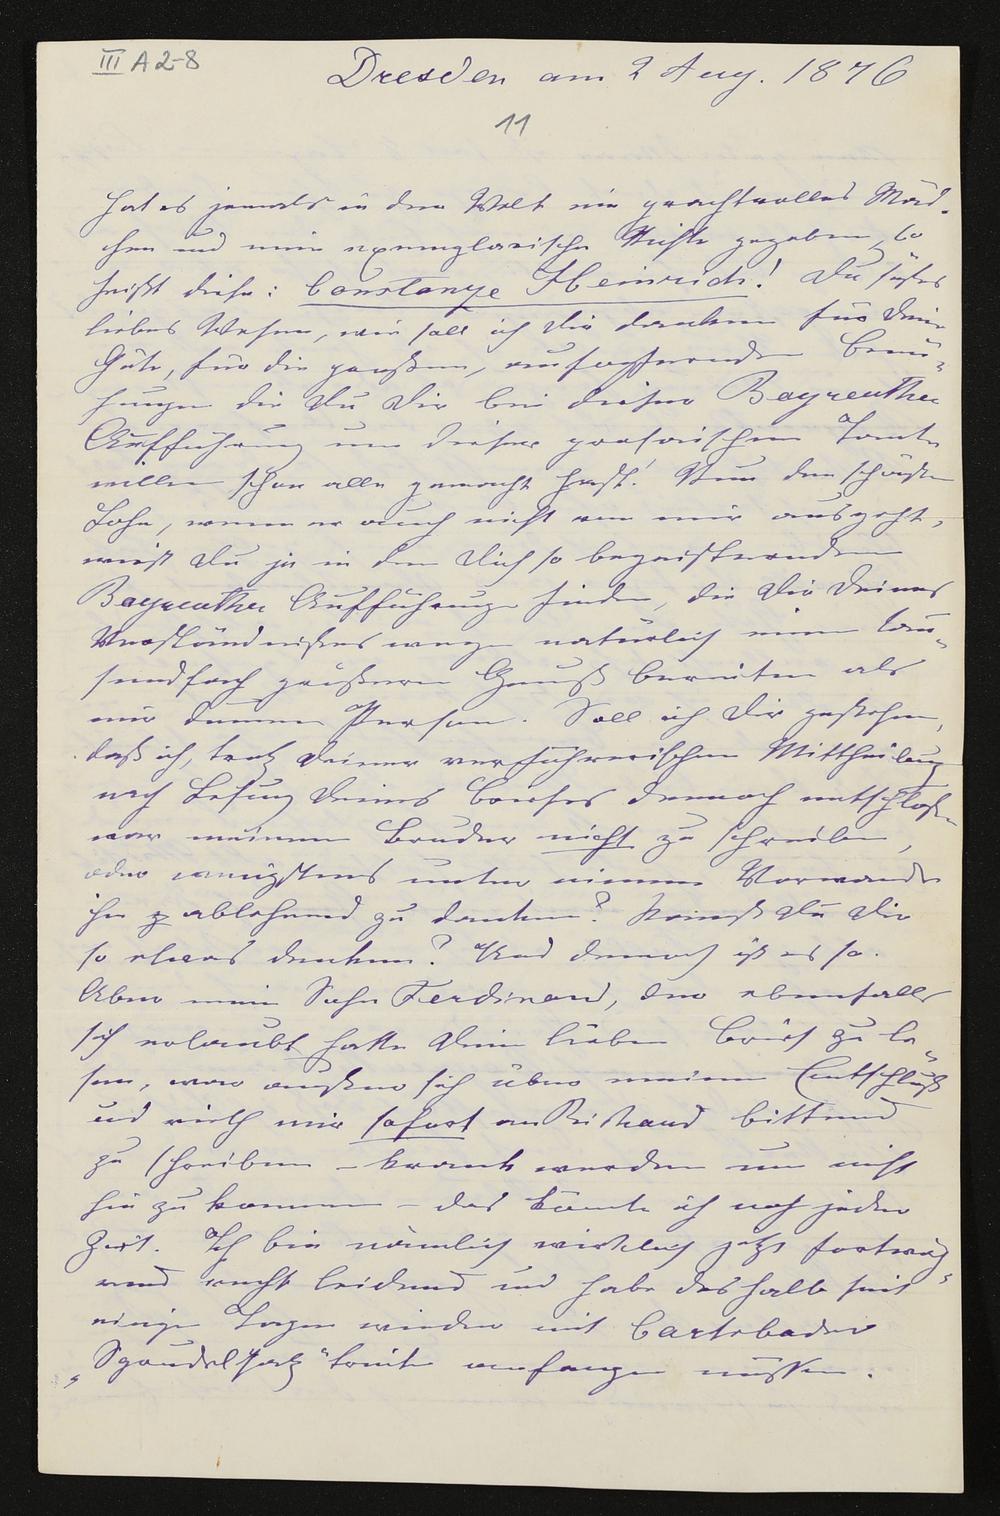 III A 2-8
Dresden am 2 Aug. 1876
11
Hat es jemals in der Welt ein prachtvolles Mäd-
chen und eine exemplarische Nichte gegeben, so
heißt diese: Constanze Heinrich! Du süßes
liebes Wesen, wie soll ich Dir danken für Deine
Güte, für die großen, aufopfernden Bemü-
hungen die Du Dir bei dieser Bayreuther
Aufführung um dieser prosaischen Tante
willen schon alle gemacht hast! Nun den schönsten
Lohn, wenn er auch nicht von mir ausgeht,
wirst Du ja in den Dich so begeisternden
Bayreuther Aufführungen finden, die Dir Deines
Verständnisses wegen natürlich einen tau-
sendfach größeren Genuß bereiten als
mir dummen Person. Soll ich Dir gestehen,
daß ich, trotz Deiner verführerischen Mittheilung
nach Lesung Deines Briefes dennoch entschloßen
war meinem Bruder nicht zu schreiben,
oder wenigstens unter einem Vorwande
ihm ablehnend zu danken? Kannst Du Dir
so etwas denken? Und dennoch ist es so.
Aber mein Sohn Ferdinand, der ebenfalls
sich erlaubt hatte Deine lieben Brief zu le-
sen, war außer sich über meinen Entschluß
und rieth mir sofort an Richard bittend
zu schreiben – krank werden um nicht
hin zu kommen – das könnte ich noch jeder
Zeit. Ich bin nämlich wirklich jetzt fortwäh-
rend recht leidend und habe deshalb seit
einigen Tagen wieder mit Carlsbader
„Sprudelsalz" trinken anfangen müssen.